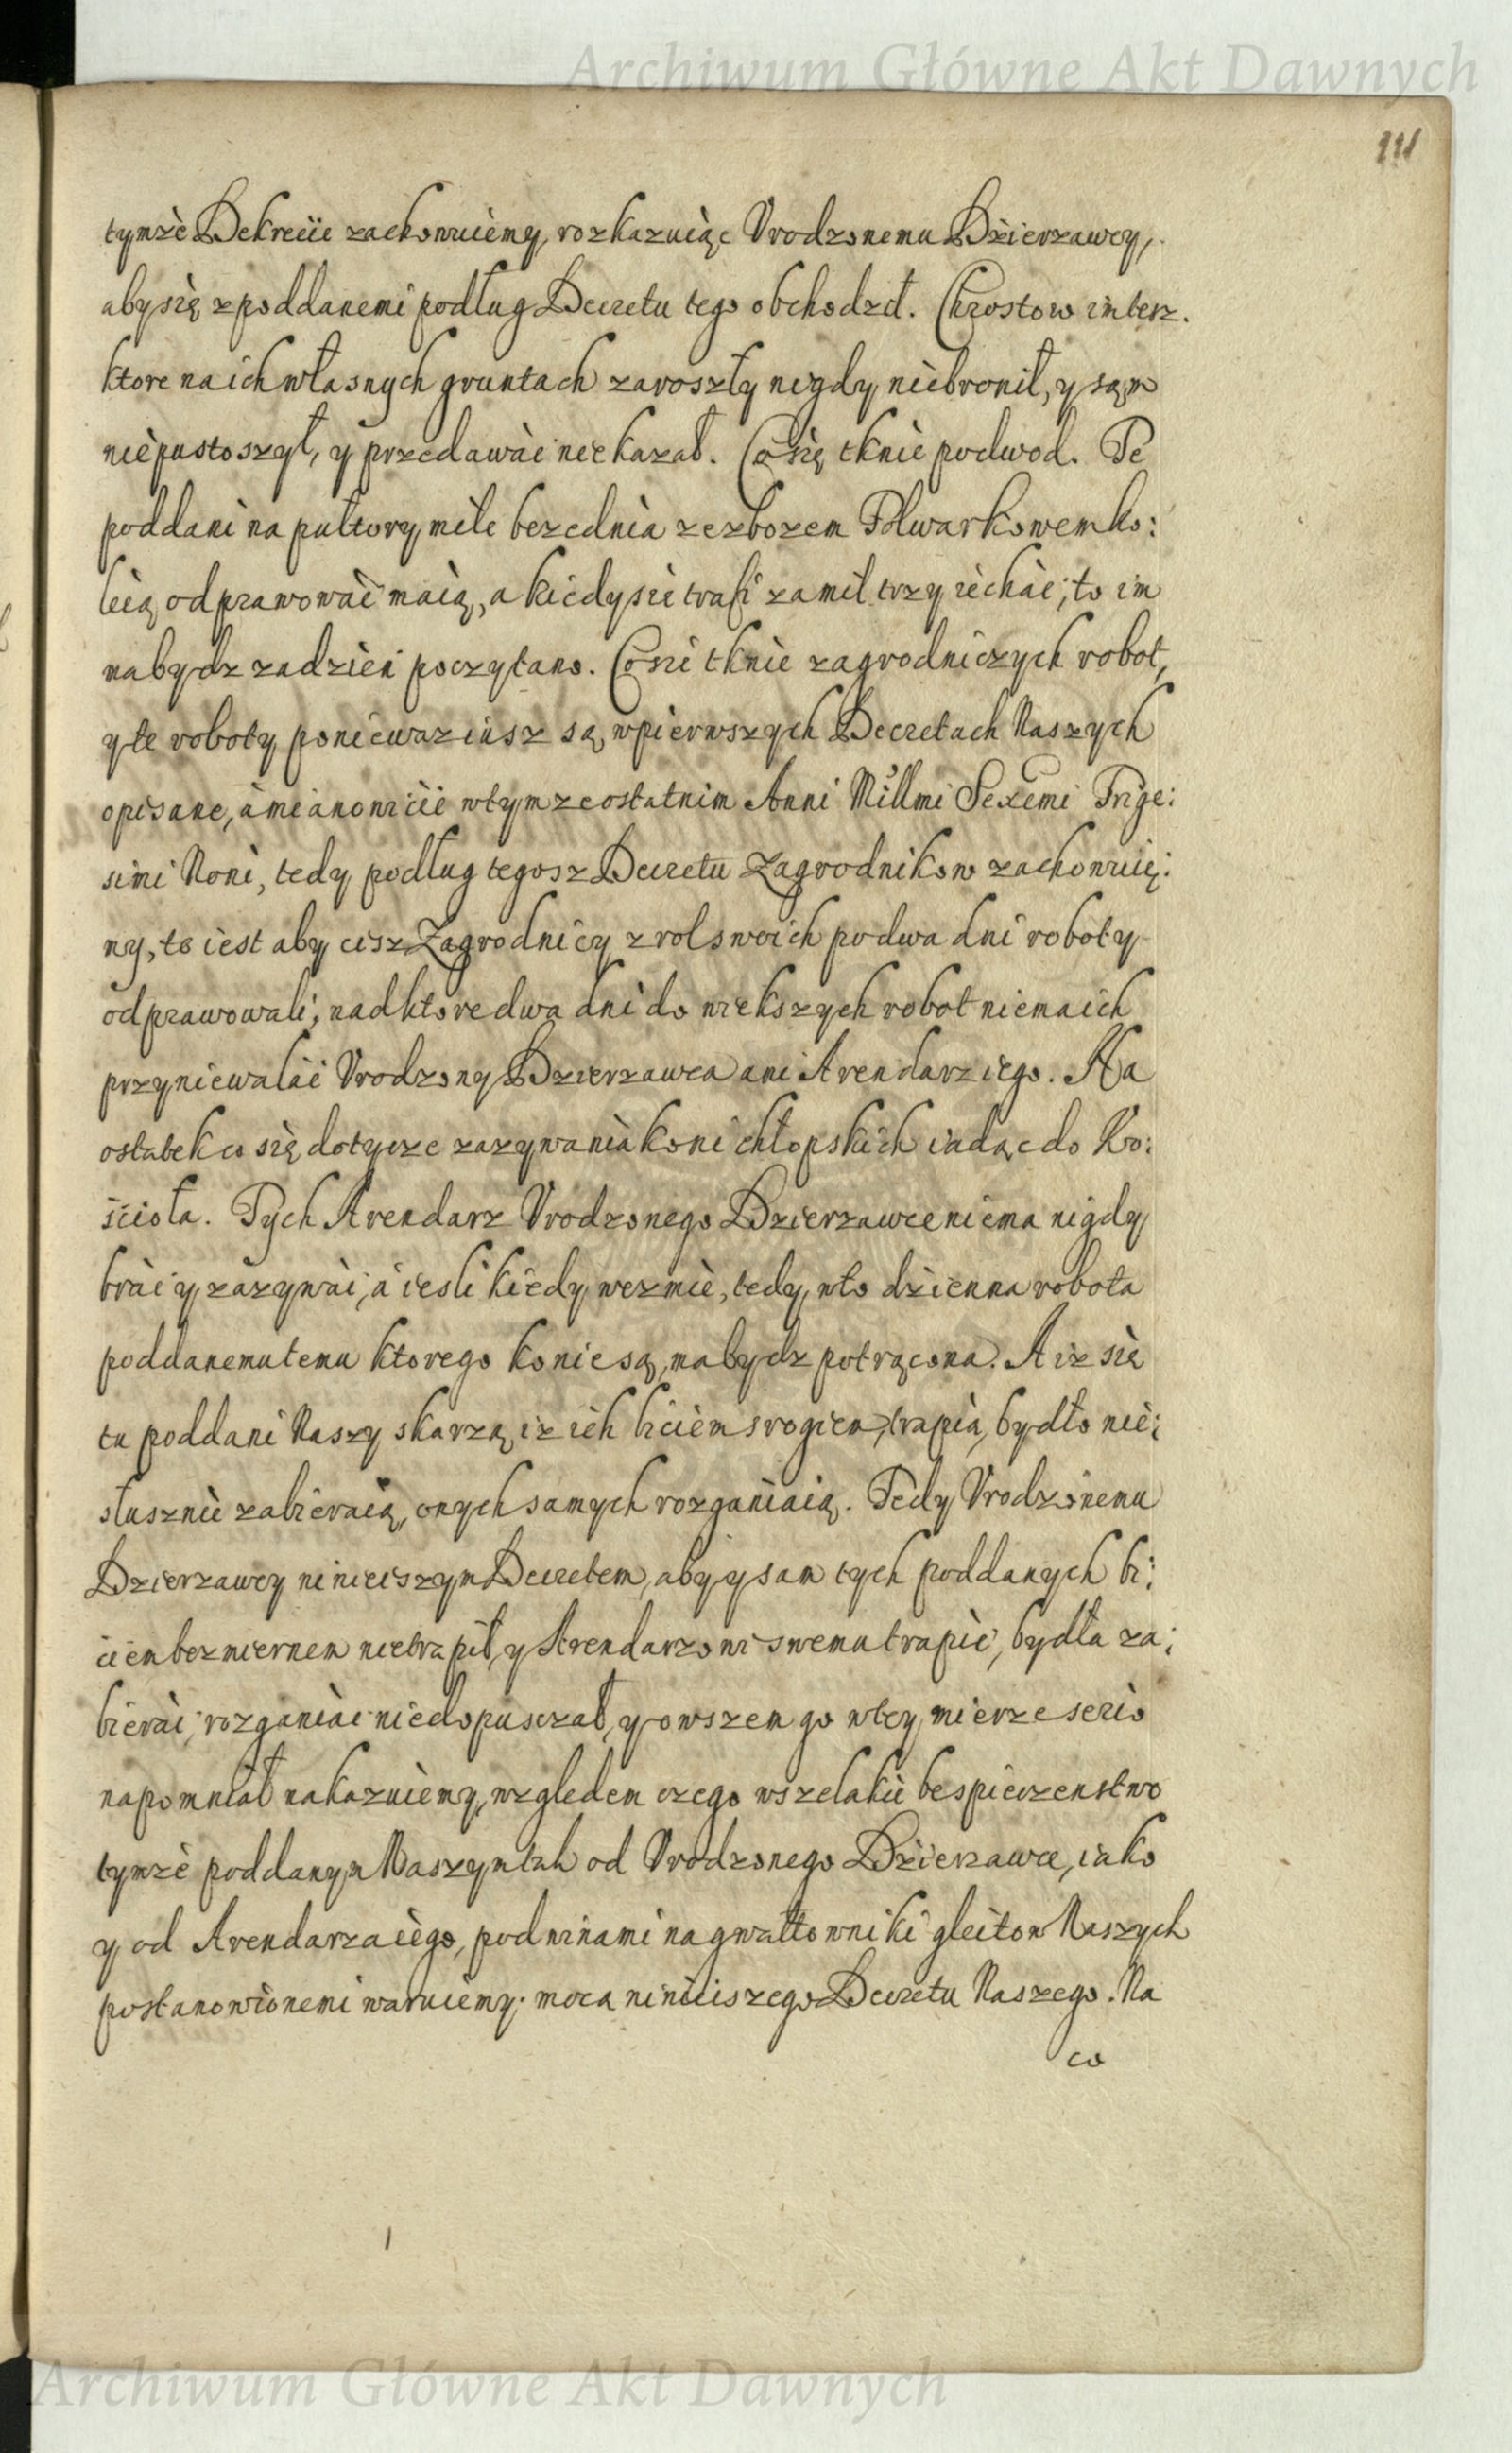 Archiwum Główne Akt Dawnych
111
tymże Dekrecie zachowuiemy, rozkazuiąc Vrodzonemu Dzierzawcy,
aby się z poddanemi podług Decretu tego obchodził. Chrostow im tesz.
ktore na ich własnych gruntach zaroszły nigdy niebronił, y sąm
niepustoszył, y przedawac niekazał. Co się tknie podwod. Te
poddani na pułtory mile bezednia ze zbozem Folwarkowem ko:
leią odprawowac maią, a kiedy sie trafi za mil trzy iechac, to im
ma bydz zadzien poczytano. Co sie tknie zagrodniczych robot,
y te roboty poniewaz iusz są w pierwszych Decretach Naszych
opisane, a mianowicie w tymze ostatnim Anni Millmi Sexcmi Trige:
simi Noni, tedy podług tegosz Decretu Zagrodnikow zachowuię:
my, to iest aby cisz Zagrodnicy z rol swoich po dwa dni roboty
odprawowali; nad ktore dwa dni do wiekszych robot niema ich
przyniewalac Vrodzony Dzierzawca ani Arendarz iego. Na
ostatek co się dotycze zazywania koni chłopskich iadąc do Ko:
scioła. Tych Arendarz Vrodzonego Dzierzawce niema nigdy
brac y zazywac, a iesli kiedy wezmie, tedy w to dzienna robota
poddanemu temu ktorego konie są, ma bydz potrącona. A iz się
tu poddani Naszy skarzą iz ich biciem srogiem trapią, bydło nie:
słusznie zabieraią, onych samych rozganiaią. Tedy Vrodzonemu
Dzierzawcy ninieiszym Decretem, aby y sam tych poddanych bi:
ciem bezmiernem nietrapił, y Arendarzowi swemu trapic, bydła za:
bierac, rozganiac niedopusczał, y owszem go w tey mierze serio
napomniał nakazuiemy, wzgledem czego wszelakie bespieczenstwo
tymze poddanym Naszym tak od Vrodzonego Dzierzawce, iako
y od Arendarza iego, pod winami na gwałtowniki gleitow Naszych
postanowionemi waruiemy. moca ninieiszego Decretu Naszego. Na
co
Archiwum Główne Akt Dawnych